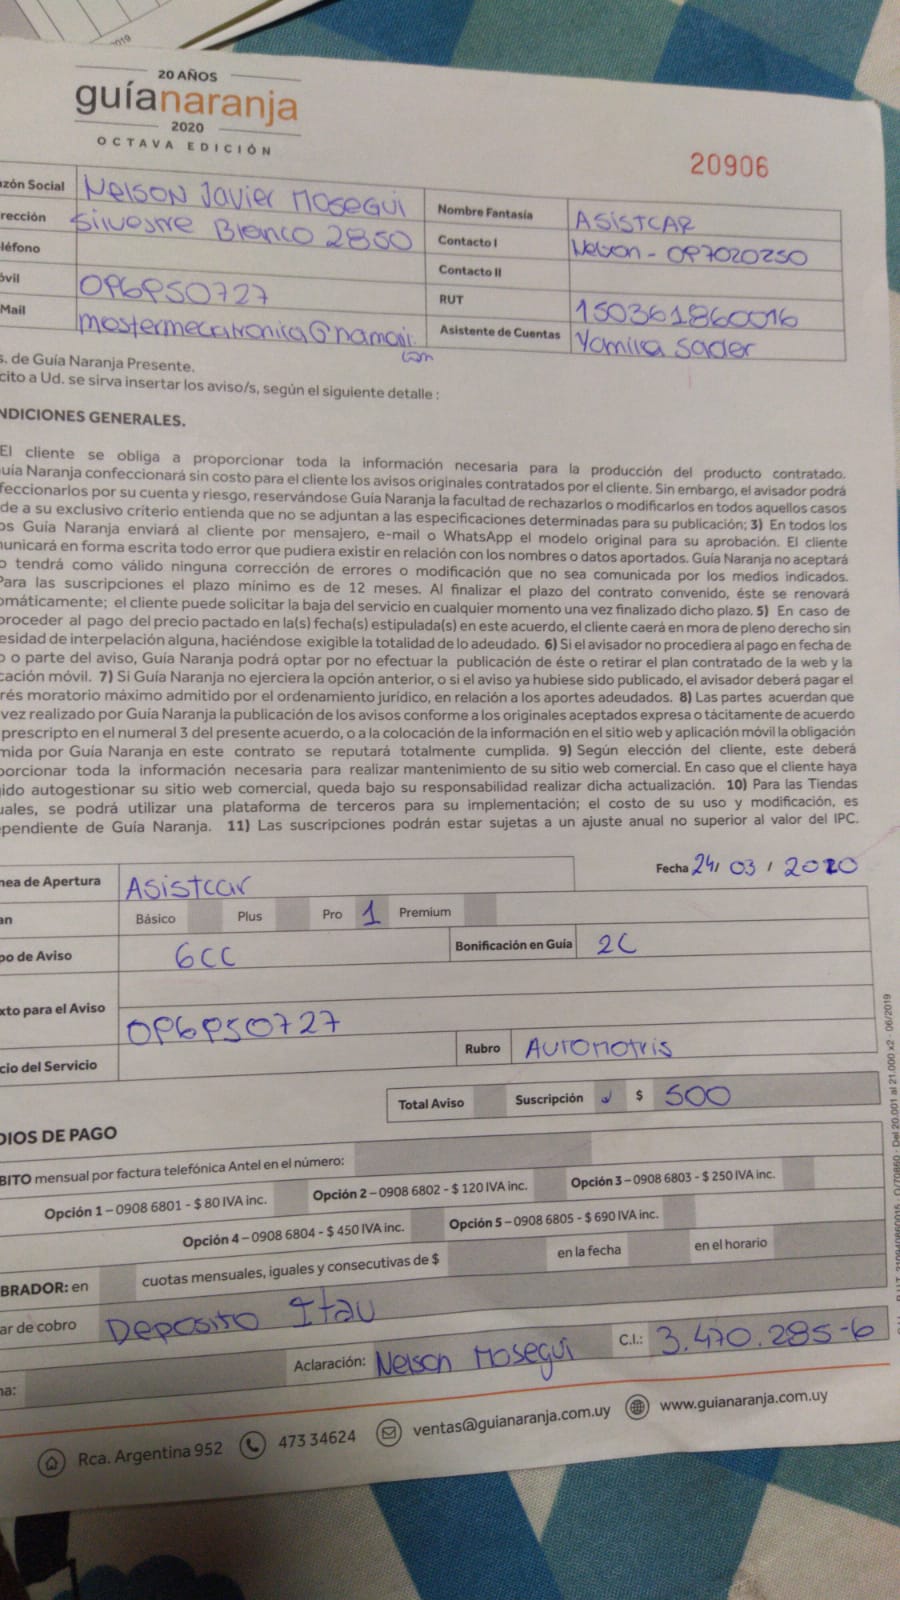 2019
20 AÑOS
guíanaranja
2020
OCTAVA EDICIÓN
20906
zón Social Nelson Javier Mosegui Nombre Fantasía ASISTCAR
rección Silvestre Blanco 2850 Contacto I Nelson - 097020250
léfono Contacto II
óvil 096950727 RUT 150361860016
Mail Asistente de Cuentas Yamila Sader
com
s. de Guía Naranja Presente.
cito a Ud. se sirva insertar los aviso/s, según el siguiente detalle :
NDICIONES GENERALES.
El cliente se obliga a proporcionar toda la información necesaria para la producción del producto contratado.
uía Naranja confeccionará sin costo para el cliente los avisos originales contratados por el cliente. Sin embargo, el avisador podrá
feccionarlos por su cuenta y riesgo, reservándose Guía Naranja la facultad de rechazarlos o modificarlos en todos aquellos casos
de a su exclusivo criterio entienda que no se adjuntan a las especificaciones determinadas para su publicación; 3) En todos los
os Guía Naranja enviará al cliente por mensajero, e-mail o WhatsApp el modelo original para su aprobación. El cliente
unicará en forma escrita todo error que pudiera existir en relación con los nombres o datos aportados. Guía Naranja no aceptará
o tendrá como válido ninguna corrección de errores o modificación que no sea comunicada por los medios indicados.
Para las suscripciones el plazo mínimo es de 12 meses. Al finalizar el plazo del contrato convenido, éste se renovará
omáticamente; el cliente puede solicitar la baja del servicio en cualquier momento una vez finalizado dicho plazo. 5) En caso de
proceder al pago del precio pactado en la(s) fecha(s) estipulada(s) en este acuerdo, el cliente caerá en mora de pleno derecho sin
esidad de interpelación alguna, haciéndose exigible la totalidad de lo adeudado. 6) Si el avisador no procediera al pago en fecha de
o o parte del aviso, Guía Naranja podrá optar por no efectuar la publicación de éste o retirar el plan contratado de la web y la
cación móvil. 7) Si Guía Naranja no ejerciera la opción anterior, o si el aviso ya hubiese sido publicado, el avisador deberá pagar el
rés moratorio máximo admitido por el ordenamiento jurídico, en relación a los aportes adeudados. 8) Las partes acuerdan que
vez realizado por Guía Naranja la publicación de los avisos conforme a los originales aceptados expresa o tácitamente de acuerdo
prescripto en el numeral 3 del presente acuerdo, o a la colocación de la información en el sitio web y aplicación móvil la obligación
mida por Guía Naranja en este contrato se reputará totalmente cumplida. 9) Según elección del cliente, este deberá
porcionar toda la información necesaria para realizar mantenimiento de su sitio web comercial. En caso que el cliente haya
ido autogestionar su sitio web comercial, queda bajo su responsabilidad realizar dicha actualización. 10) Para las Tiendas
uales, se podrá utilizar una plataforma de terceros para su implementación; el costo de su uso y modificación, es
ependiente de Guía Naranja. 11) Las suscripciones podrán estar sujetas a un ajuste anual no superior al valor del IPC.
Fecha 24/ 03 / 2020
nea de Apertura Asistcar
an Básico Plus Pro 1 Premium
po de Aviso 6CC Bonificación en Guía 2C
xto para el Aviso 096950727
cio del Servicio Rubro Automotris
Total Aviso Suscripción $ 500
DIOS DE PAGO
BITO mensual por factura telefónica Antel en el número:
Opción 1 – 0908 6801 - $ 80 IVA inc. Opción 2 – 0908 6802 - $ 120 IVA inc. Opción 3 – 0908 6803 - $ 250 IVA inc.
Opción 4 – 0908 6804 - $ 450 IVA inc. Opción 5 – 0908 6805 - $ 690 IVA inc.
BRADOR: en cuotas mensuales, iguales y consecutivas de $ en la fecha en el horario
ar de cobro Deposito Itau
na: Aclaración: Nelson Mosegui C.I.: 3.470.285-6
Rca. Argentina 952 473 34624 ventas@guianaranja.com.uy www.guianaranja.com.uy
Del 20.001 al 21.000 x2 - 06/2019